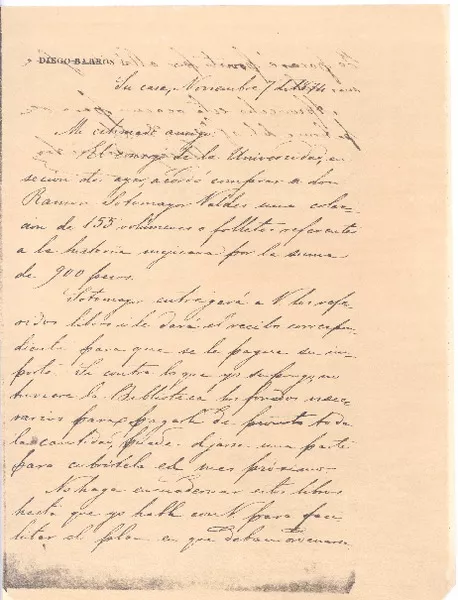 DIEGO BARROS
Su casa, Noviembre 7 de
Mi estimado amigo:
El consejo de la Universidad, en
sesion de ayer, acordó comprar a don
Ramon Sotomayor Valdes una colec-
cion de 155 volúmenes o folletos referentes
a la historia mejicana por la suma
de 900 pesos.
Sotomayor entregará a V. los refe-
ridos libros i le dará el recibo correspon-
diente para que se le pague su im-
porte. Si contra lo que yo supongo, no
tuviere la Biblioteca los fondos nece-
sarios para pagarle de pronto toda
la cantidad, puede dejarse una parte
para cubrirsela el mes próximo.
No haga encuadernar estos libros
hasta que yo hable con V. para faci-
litar el plan en que deban